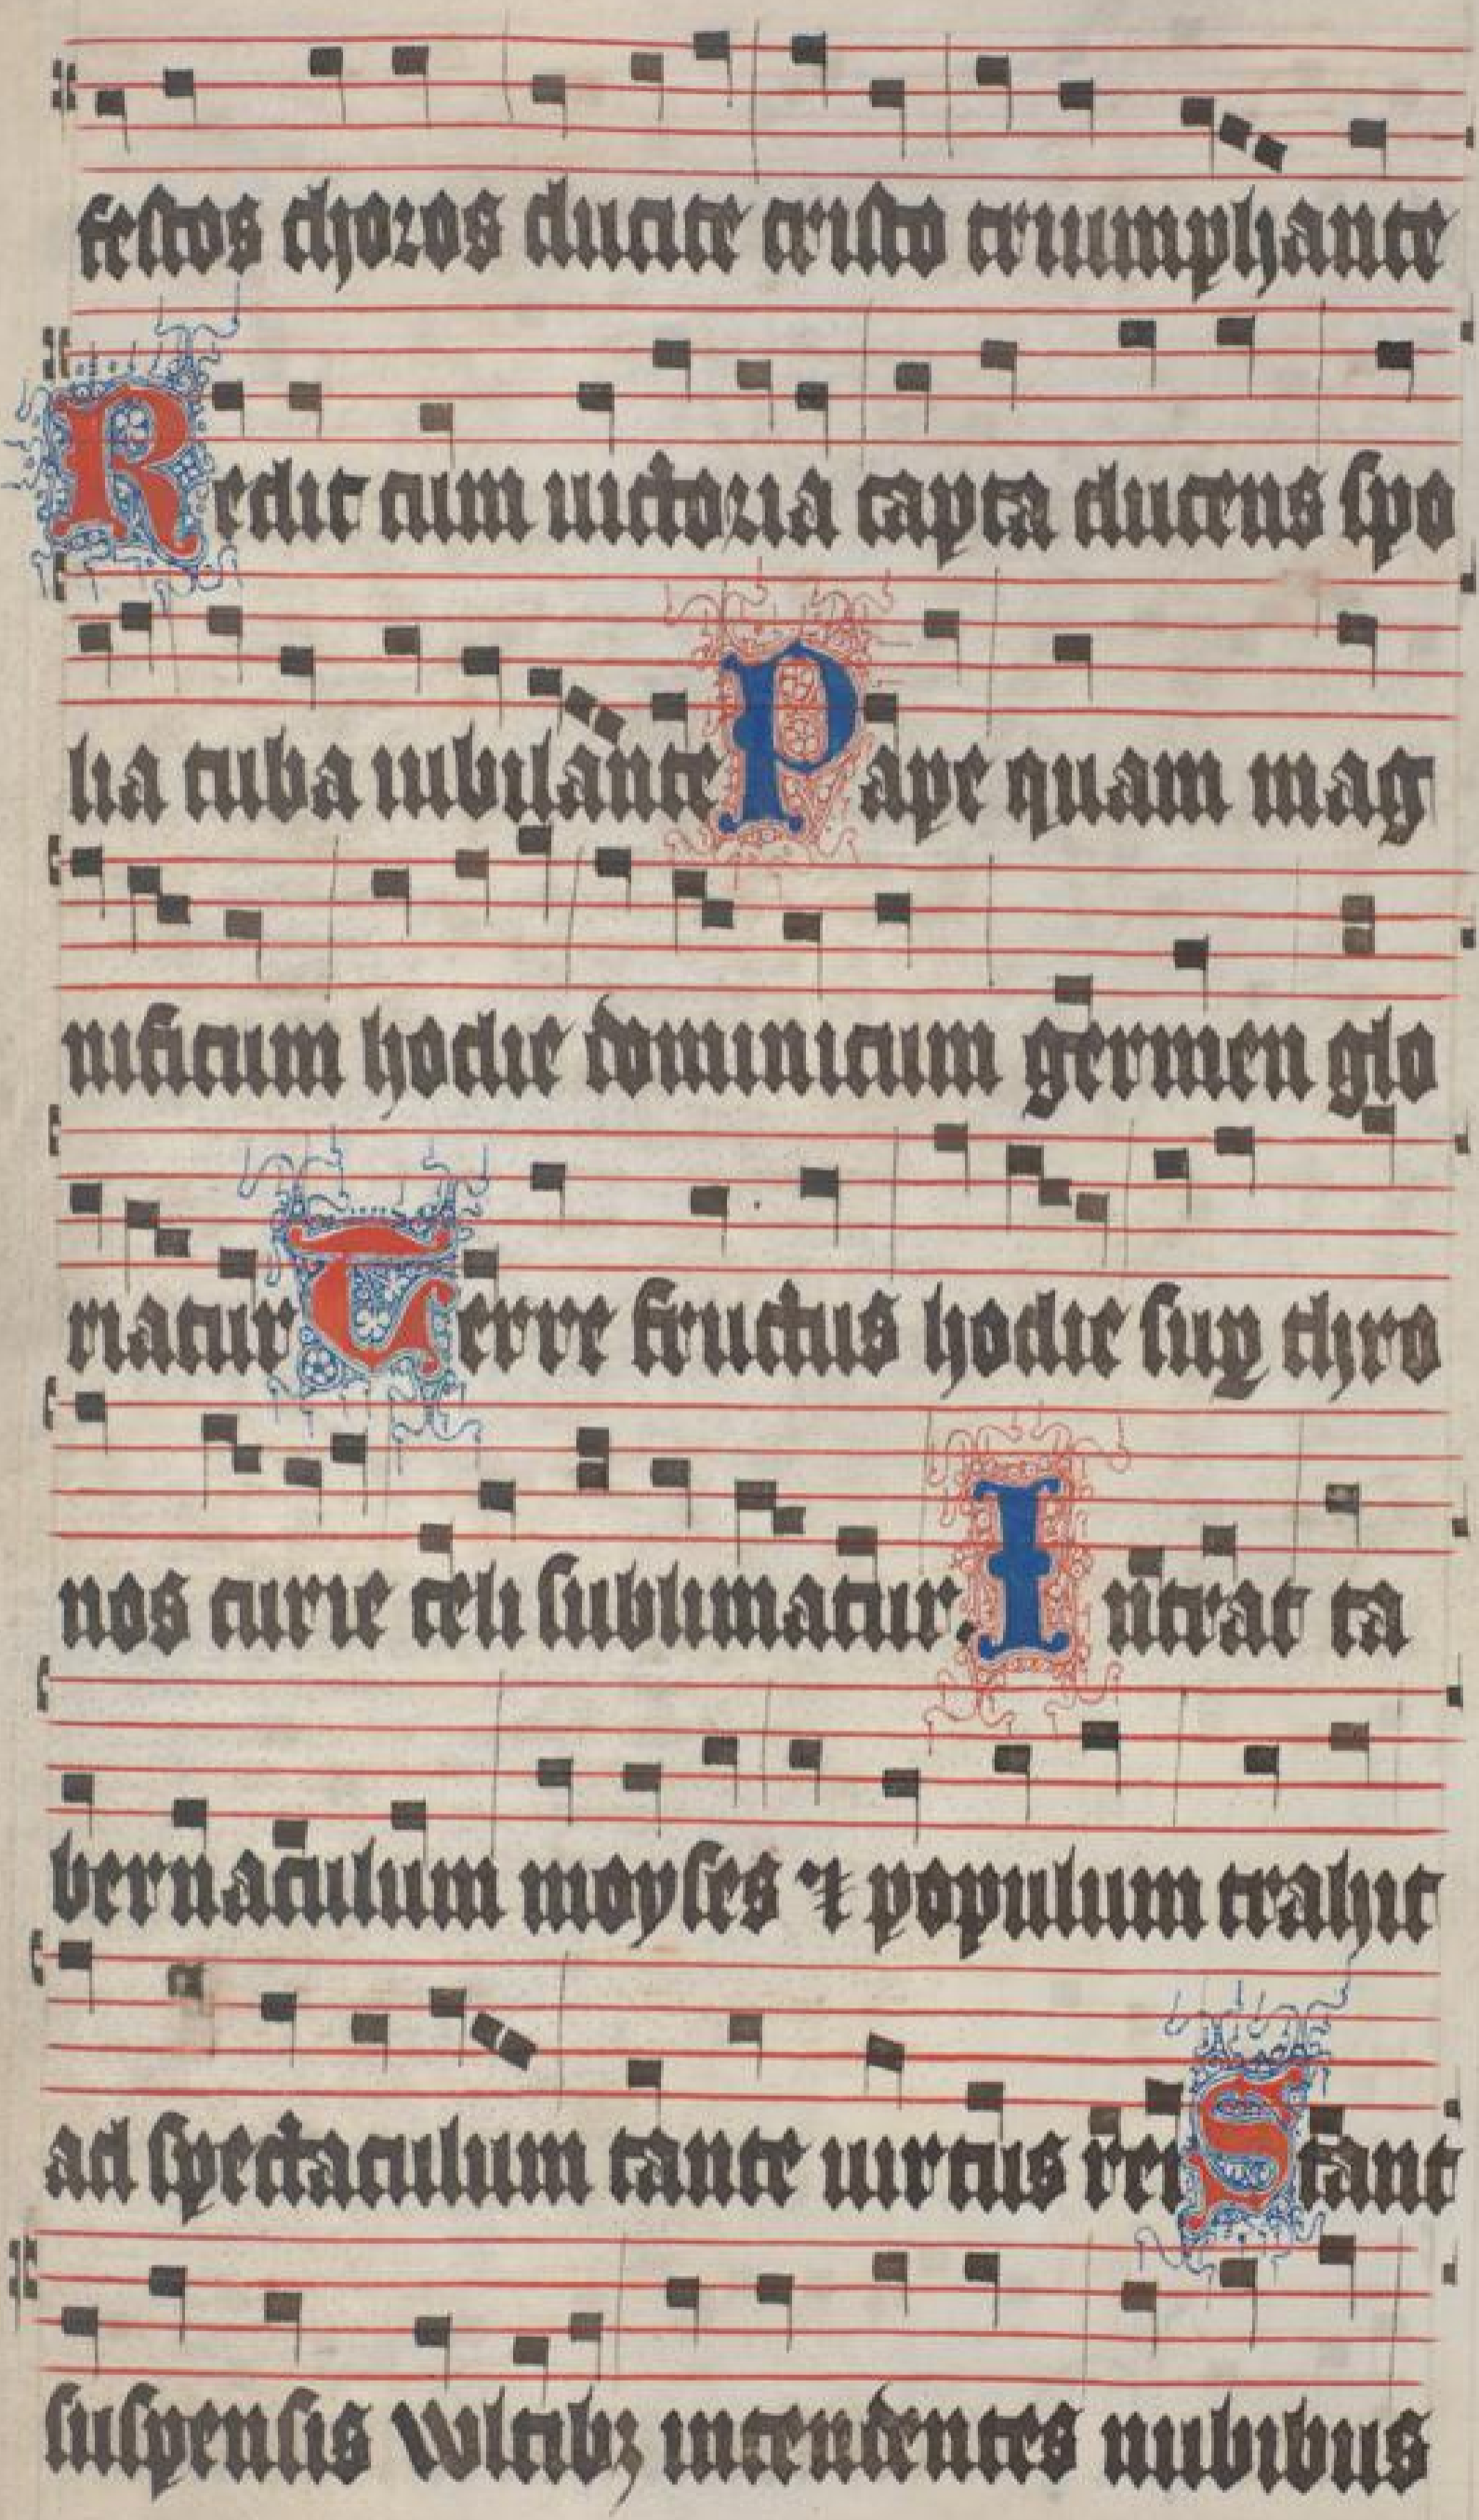 festos choros ducite cristo triumphante
Redit cum uictoria capta ducens spo
lia tuba iubilante Pape quam mag
nificum hodie dominicum germen glo
riatur Terre fructus hodie sup thro
nos curie celi sublimatur. Intrat ta
bernaculum moyses ⁊ populum trahit
ad spectaculum tante uirtus rei Stant
suspensis wltibꝫ intendentes nubibus